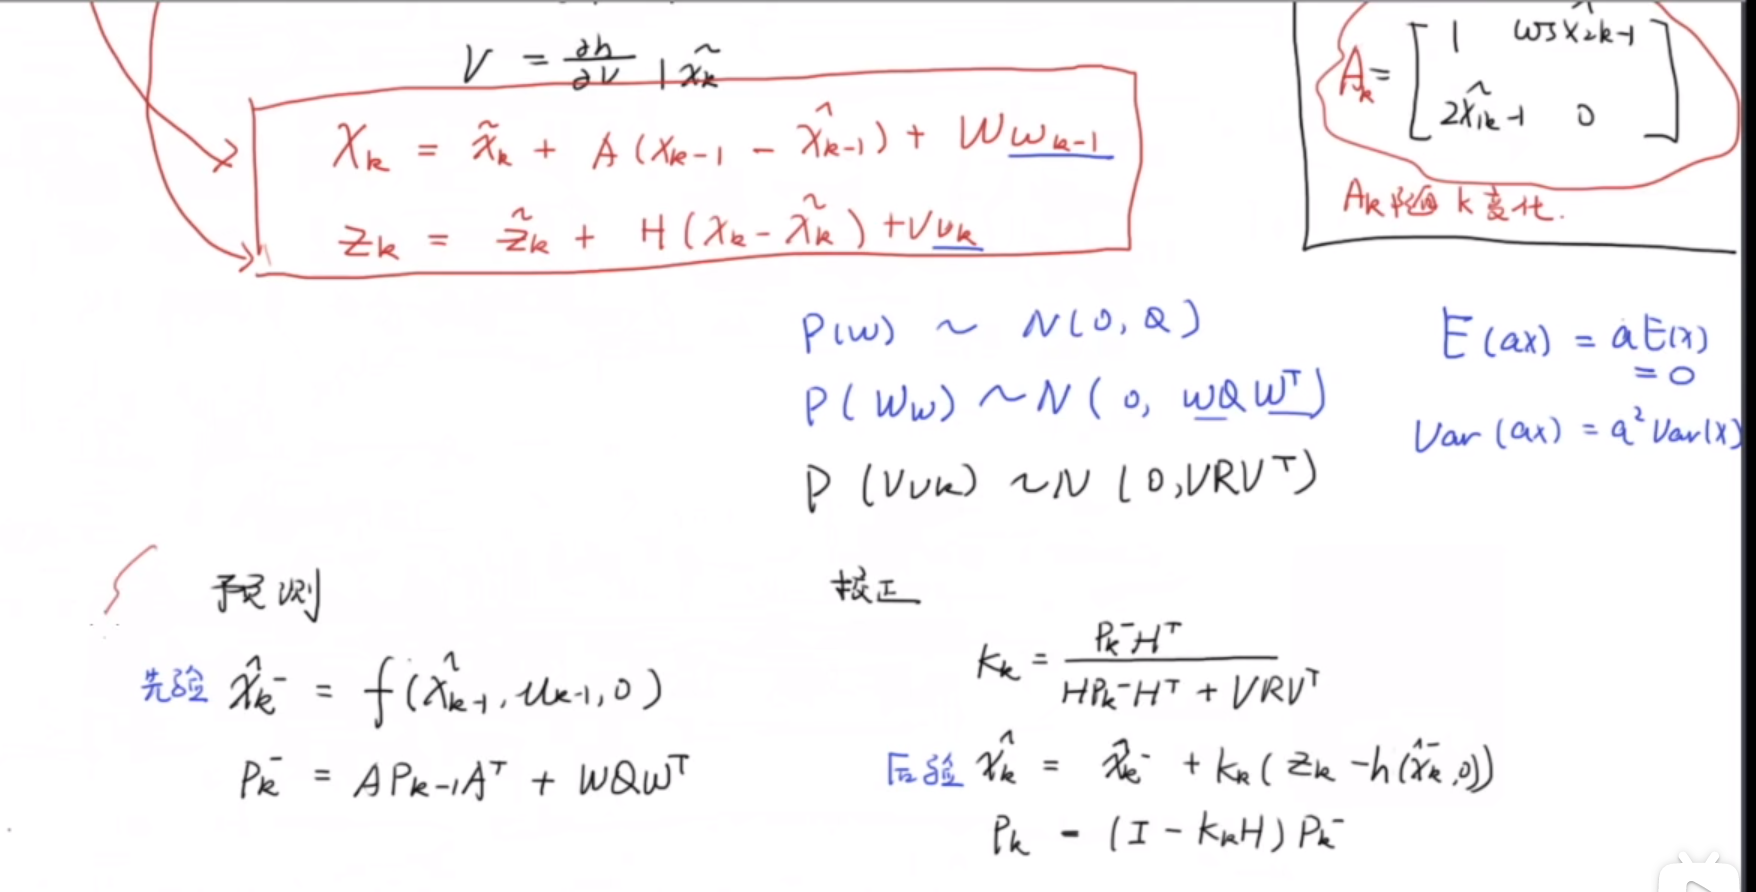 V = ∂h/∂V | x̃k
Xk = x̃k + A(xk-1 - x̂k-1) + Wwk-1
zk = z̃k + H(xk - x̃k) + Vvk
Ak = [1 cosx̂2k-1
2x̂1k-1 0]
Ak 随 k 变化.
P(w) ~ N(0, Q)
P(Ww) ~ N(0, WQWᵀ)
P(Vvk) ~ N(0, VRVᵀ)
E(ax) = aE(x)
= 0
Var(ax) = a²Var(x)
预测
先验 x̂k⁻ = f(x̂k-1, uk-1, 0)
Pk⁻ = APk-1Aᵀ + WQWᵀ
校正
Kk = Pk⁻Hᵀ / HPk⁻Hᵀ + VRVᵀ
后验 x̂k = x̂k⁻ + Kk(zk - h(x̂k⁻, 0))
Pk = (I - KkH)Pk⁻